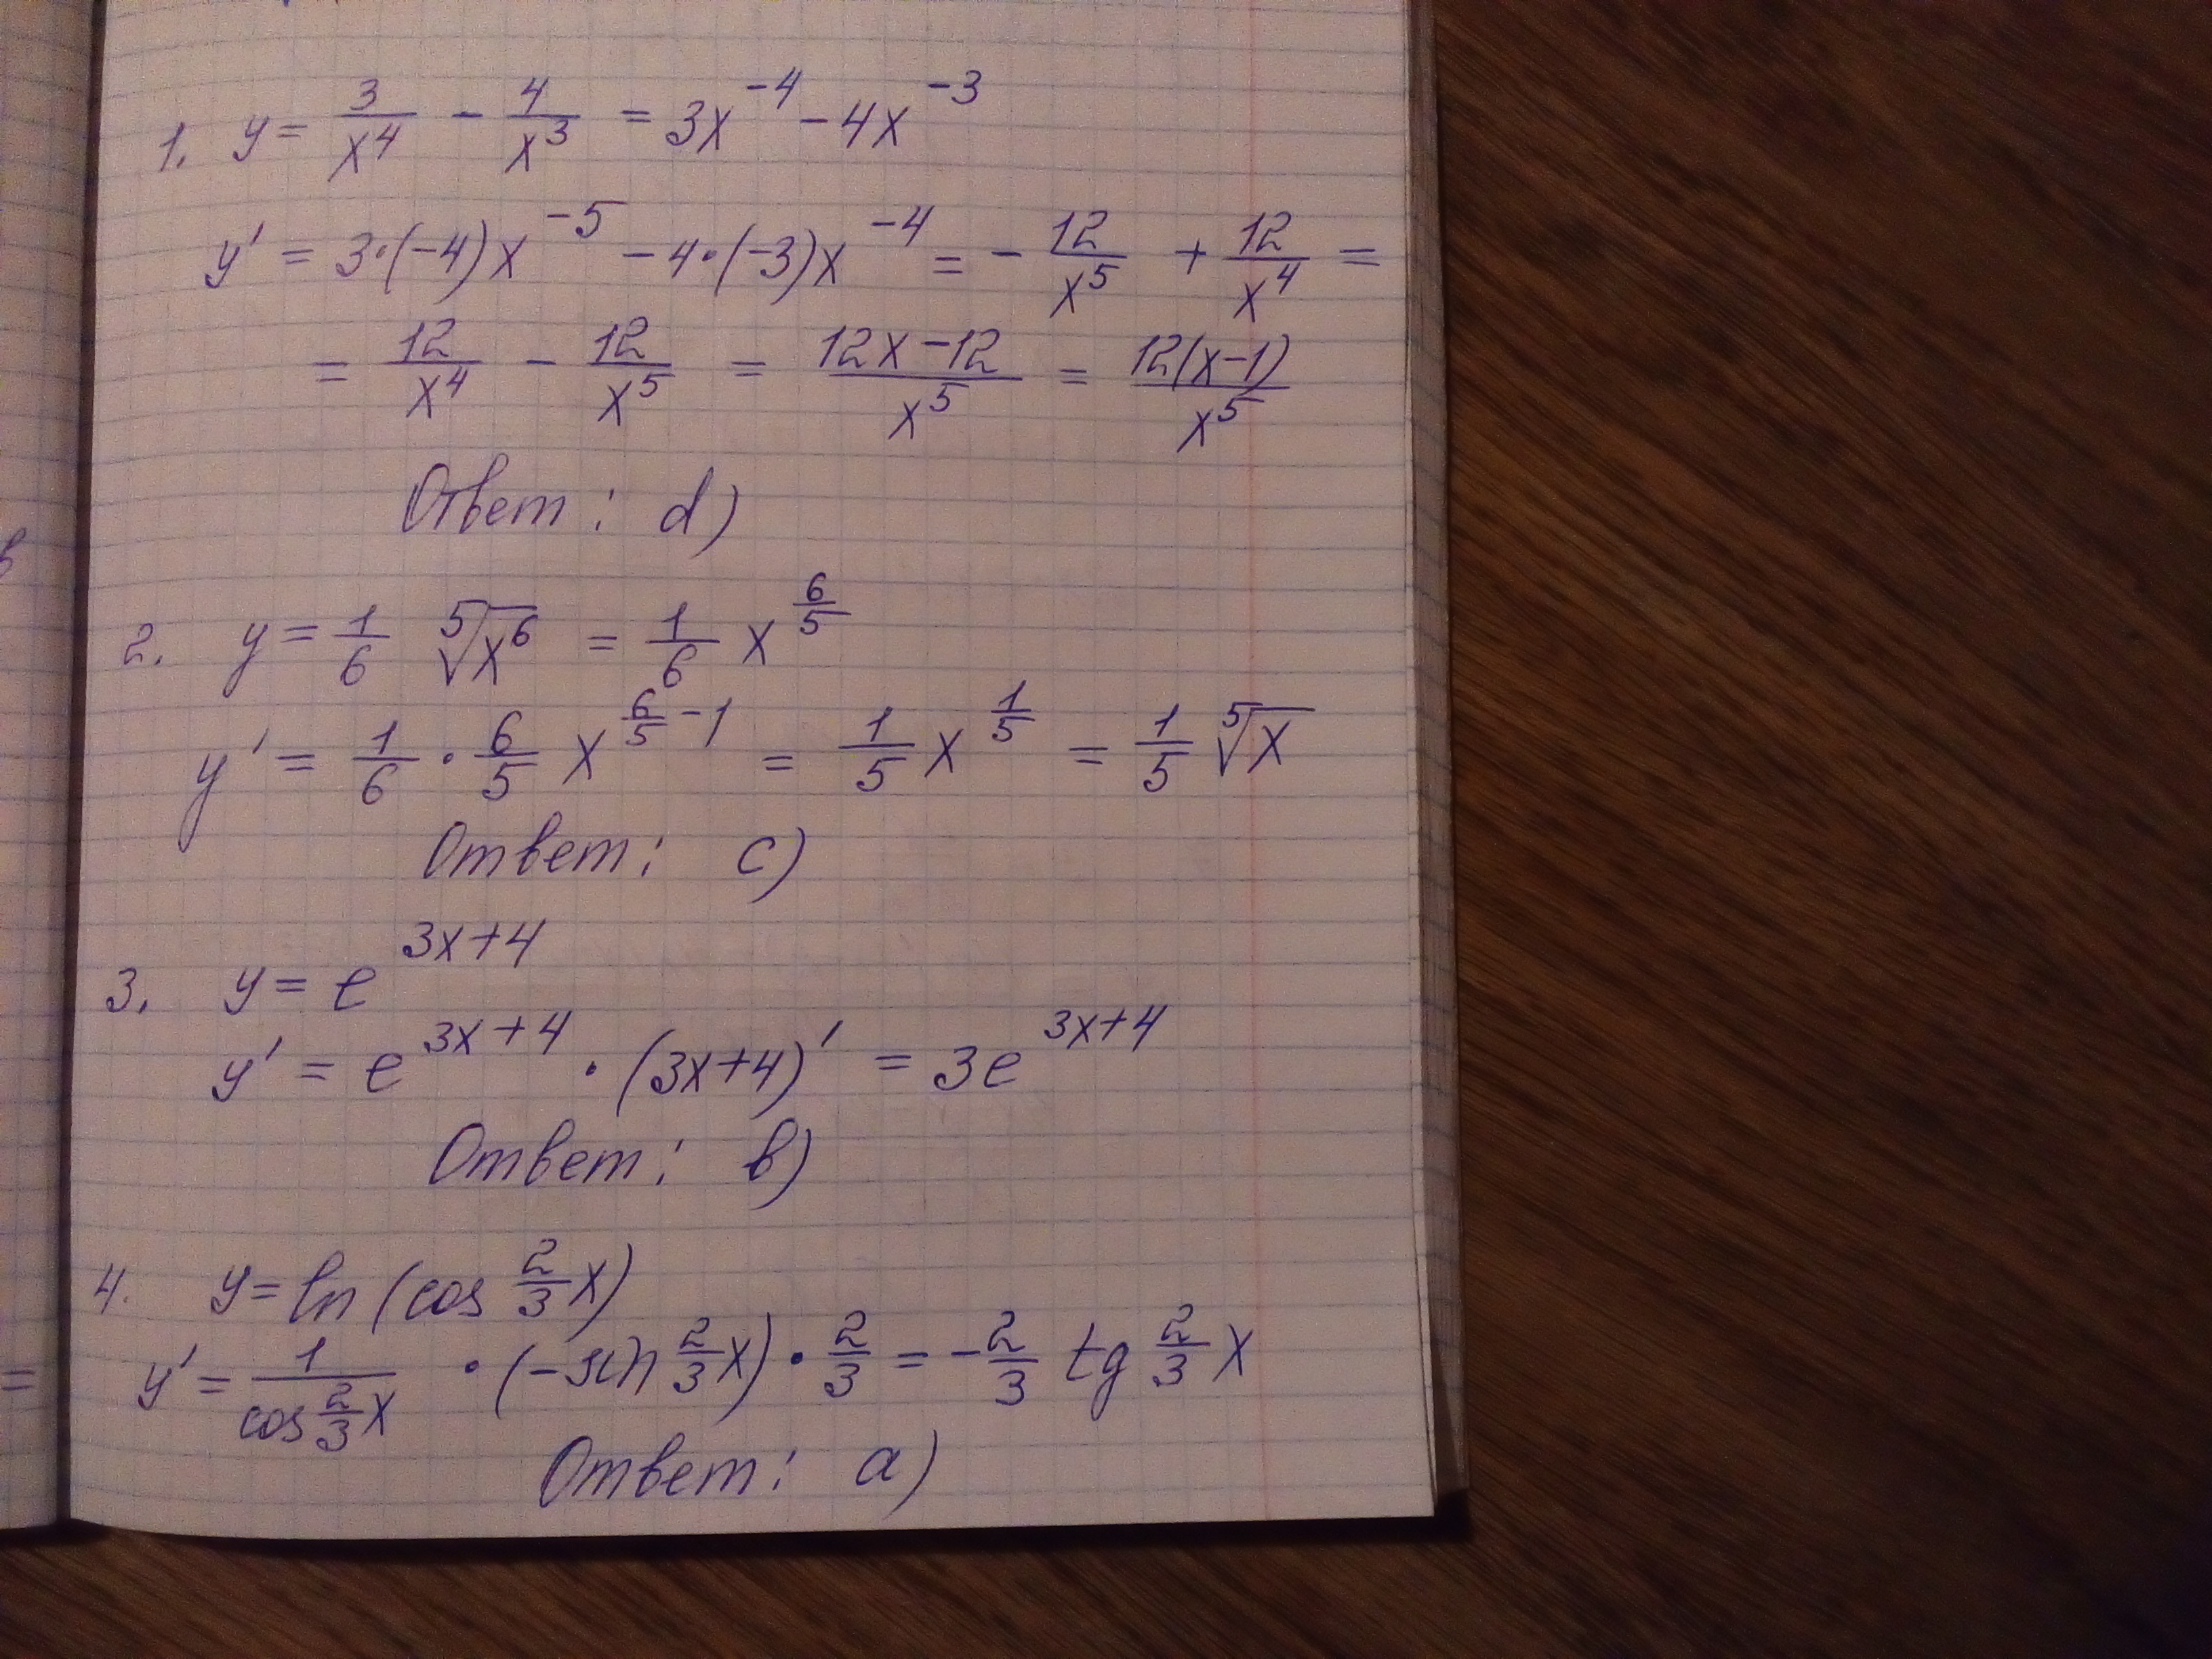 1. y = 3/x⁴ - 4/x³ = 3x⁻⁴ - 4x⁻³
y' = 3·(-4)x⁻⁵ - 4·(-3)x⁻⁴ = - 12/x⁵ + 12/x⁴ =
= 12/x⁴ - 12/x⁵ = (12x-12)/x⁵ = 12(x-1)/x⁵
Ответ: d)
2. y = 1/6 ⁵√(x⁶) = 1/6 x^(6/5)
y' = 1/6 · 6/5 x^(6/5 - 1) = 1/5 x^(1/5) = 1/5 ⁵√x
Ответ: c)
3. y = e^(3x+4)
y' = e^(3x+4) · (3x+4)' = 3e^(3x+4)
Ответ: b)
4. y = ln(cos 2/3 x)
y' = 1/(cos 2/3 x) · (-sin 2/3 x) · 2/3 = - 2/3 tg 2/3 x
Ответ: a)